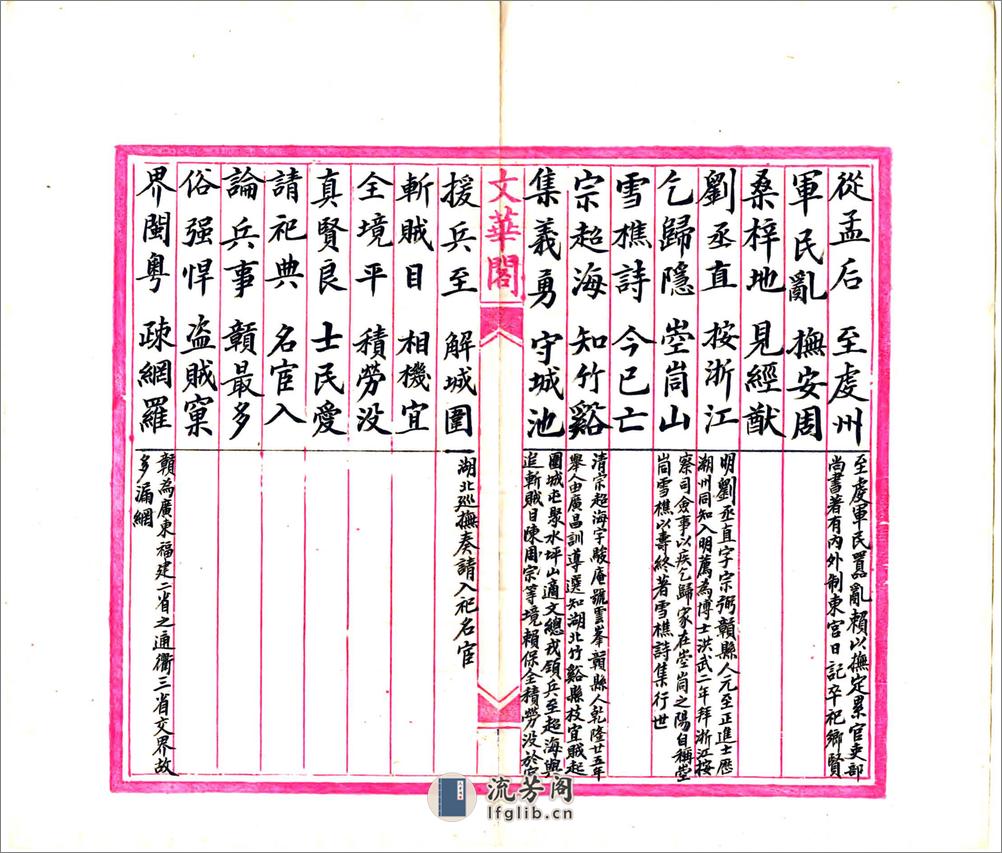 從孟后 至虔州
至虔軍民囂亂賴以撫定累官吏部
尚書著有内外制東宮日記卒祀鄉賢
軍民亂 撫安周
桑梓地 見經猷
劉丞直 按浙江
明劉丞直字宗弼贛縣人元至正進士歷
湖州同知入明薦為博士洪武二年拜浙江按
乞歸隱 崆峒山
察司僉事以疾乞歸家在崆峒之陽自稱崆
峒雪樵以壽終著雪樵詩集行世
雪樵詩 今已亡
宗超海 知竹谿
清宗超海字駿庵號雲峯贛縣人乾隆廿五年
舉人由廣昌訓導選知湖北竹谿縣枝宜賊起
集義勇 守城池
圍城屯聚水坪山適文總戎領兵至超海與
追斬賊目陳周宗等境賴保全積勞没於官
文華閣
援兵至 解城圍
湖北巡撫奏請入祀名宦
斬賊目 相機宜
全境平 積勞没
真賢良 士民愛
請祀典 名宦入
論兵事 贛最多
俗强悍 盗賊窠
界閩粤 疎網羅
贛為廣東福建二省之通衢三省交界故
多漏網
流芳阁
lfglib.cn